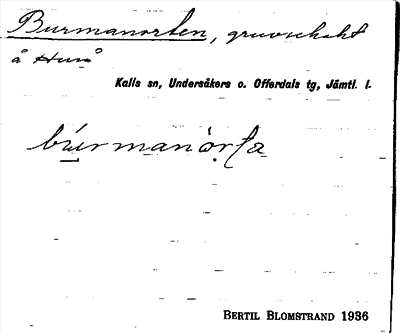 Burmanorten, gruvschakt
å Huså
Kalls sn, Undersåkers o. Offerdals tg, Jämtl. l.
bu̲rmanòṛta
BERTIL BLOMSTRAND 1936